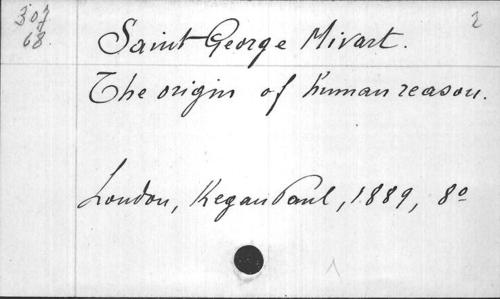 307
68.
2
Saint George Mivart.
The origin of human reason.
London, Kegan Paul, 1889, 8o
1